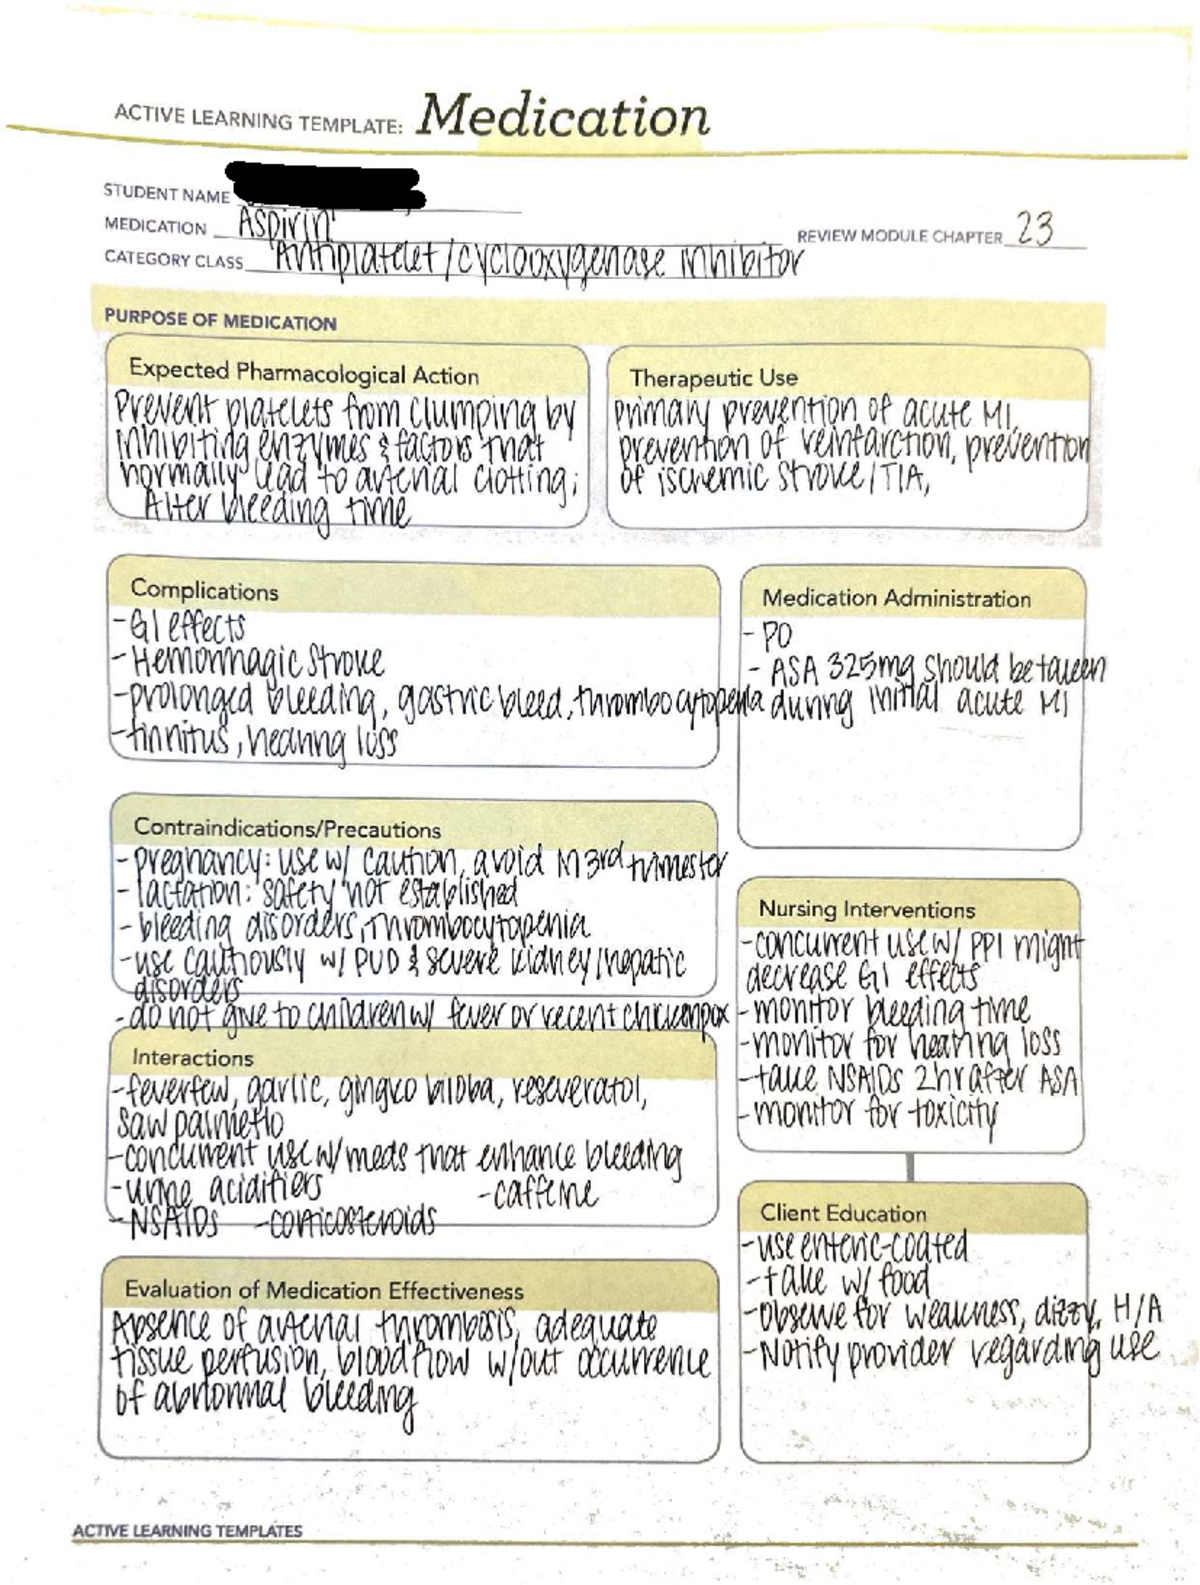 ACTIVE LEARNING TEMPLATE: Medication
STUDENT NAME
MEDICATION Aspirin
REVIEW MODULE CHAPTER 23
CATEGORY CLASS Antiplatelet/cyclooxygenase inhibitor
PURPOSE OF MEDICATION
Expected Pharmacological Action
Prevent platelets from clumping by
inhibiting enzymes & factors that
normally lead to arterial clotting;
Alter bleeding time
Therapeutic Use
primary prevention of acute MI,
prevention of reinfarction, prevention
of ischemic stroke/TIA,
Complications
-GI effects
-Hemorrhagic stroke
-prolonged bleeding, gastric bleed, thrombocytopenia
-tinnitus, hearing loss
Medication Administration
- PO
- ASA 325mg should be taken
during initial acute MI
Contraindications/Precautions
-pregnancy: use w/ caution, avoid in 3rd trimester
-lactation: safety not established
-bleeding disorders, thrombocytopenia
-use cautiously w/ PUD & severe kidney/hepatic
disorders
-do not give to children w/ fever or recent chickenpox
Interactions
-feverfew, garlic, gingko biloba, reseveratol,
saw palmetto
-concurrent use w/ meds that enhance bleeding
-urine acidifiers -caffeine
-NSAIDs -corticosteroids
Evaluation of Medication Effectiveness
Absence of arterial thrombosis, adequate
tissue perfusion, blood flow w/out occurrence
of abnormal bleeding
Nursing Interventions
-concurrent use w/ PPI might
decrease GI effects
-monitor bleeding time
-monitor for hearing loss
-take NSAIDs 2hr after ASA
-monitor for toxicity
Client Education
-use enteric-coated
-take w/ food
-observe for weakness, dizzy, H/A
-Notify provider regarding use
ACTIVE LEARNING TEMPLATES